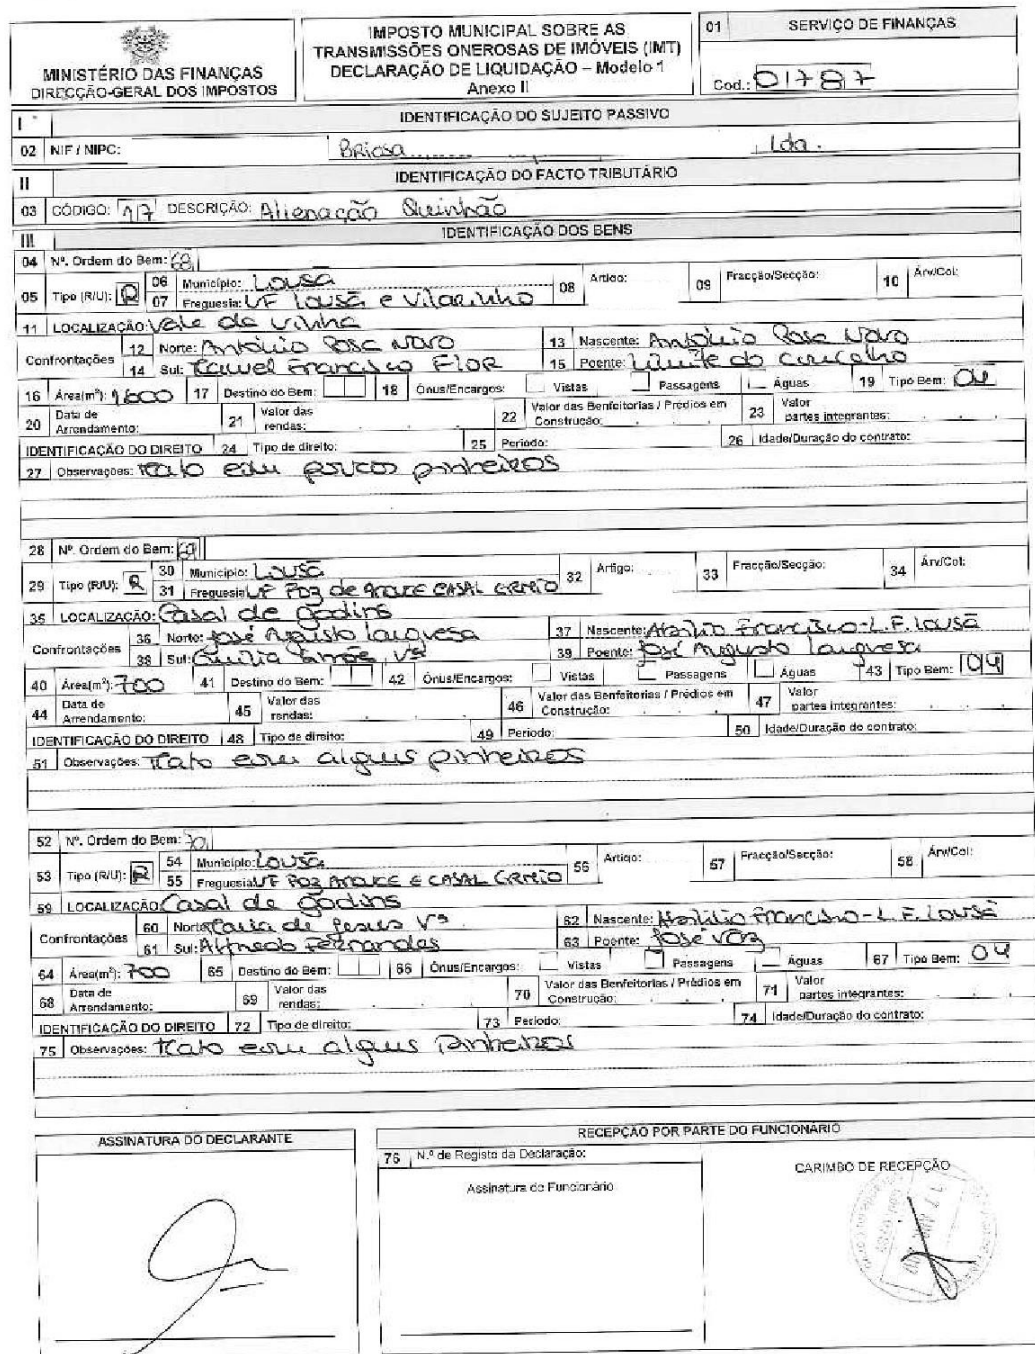 MINISTÉRIO DAS FINANÇAS
DIRECÇÃO-GERAL DOS IMPOSTOS
IMPOSTO MUNICIPAL SOBRE AS
TRANSMISSÕES ONEROSAS DE IMÓVEIS (IMT)
DECLARAÇÃO DE LIQUIDAÇÃO – Modelo 1
Anexo II
01 SERVIÇO DE FINANÇAS
Cod.: 01787
I IDENTIFICAÇÃO DO SUJEITO PASSIVO
02 NIF / NIPC: Briosa Lda.
II IDENTIFICAÇÃO DO FACTO TRIBUTÁRIO
03 CÓDIGO: 17 DESCRIÇÃO: Alienação Quinhão
III IDENTIFICAÇÃO DOS BENS
04 Nº. Ordem do Bem: 68
05 Tipo (R/U): R 06 Município: Lousã 08 Artigo: 09 Fracção/Secção: 10 Árv/Col:
07 Freguesia: UF Lousã e Vilarinho
11 LOCALIZAÇÃO: Vale da Vinha
Confrontações 12 Norte: António Rosa Novo 13 Nascente: António Rosa Novo
14 Sul: Manuel Francisco Flor 15 Poente: Limite do concelho
16 Área(m²): 1600 17 Destino do Bem: 18 Ónus/Encargos: Vistas Passagens Águas 19 Tipo Bem: 04
20 Data de Arrendamento: 21 Valor das rendas: 22 Valor das Benfeitorias / Prédios em Construção: 23 Valor partes integrantes:
IDENTIFICAÇÃO DO DIREITO 24 Tipo de direito: 25 Período: 26 Idade/Duração do contrato:
27 Observações: Mato com poucos pinheiros
28 Nº. Ordem do Bem: 69
29 Tipo (R/U): R 30 Município: Lousã 32 Artigo: 33 Fracção/Secção: 34 Árv/Col:
31 Freguesia: UF FOZ de AROUCE CASAL ERMIO
35 LOCALIZAÇÃO: Casal de Godins
Confrontações 36 Norte: José Augusto 37 Nascente: Francisco - L.F. Lousã
38 Sul: Simões, Vª 39 Poente: José Augusto
40 Área(m²): 700 41 Destino do Bem: 42 Ónus/Encargos: Vistas Passagens Águas 43 Tipo Bem: 04
44 Data de Arrendamento: 45 Valor das rendas: 46 Valor das Benfeitorias / Prédios em Construção: 47 Valor partes integrantes:
IDENTIFICAÇÃO DO DIREITO 48 Tipo de direito: 49 Período: 50 Idade/Duração do contrato:
51 Observações: Mato com alguns pinheiros
52 Nº. Ordem do Bem: 70
53 Tipo (R/U): R 54 Município: Lousã 56 Artigo: 57 Fracção/Secção: 58 Árv/Col:
55 Freguesia: UF FOZ AROUCE E CASAL ERMIO
59 LOCALIZAÇÃO: Casal de Godins
Confrontações 60 Norte: Maria de Jesus Vª 62 Nascente: Francisco - L.F. Lousã
61 Sul: Alfredo Fernandes 63 Poente: José Vaz
64 Área(m²): 700 65 Destino do Bem: 66 Ónus/Encargos: Vistas Passagens Águas 67 Tipo Bem: 04
68 Data de Arrendamento: 69 Valor das rendas: 70 Valor das Benfeitorias / Prédios em Construção: 71 Valor partes integrantes:
IDENTIFICAÇÃO DO DIREITO 72 Tipo de direito: 73 Período: 74 Idade/Duração do contrato:
75 Observações: Mato com alguns pinheiros
ASSINATURA DO DECLARANTE
RECEPÇÃO POR PARTE DO FUNCIONÁRIO
76 N.º de Registo da Declaração:
Assinatura do Funcionário
CARIMBO DE RECEPÇÃO